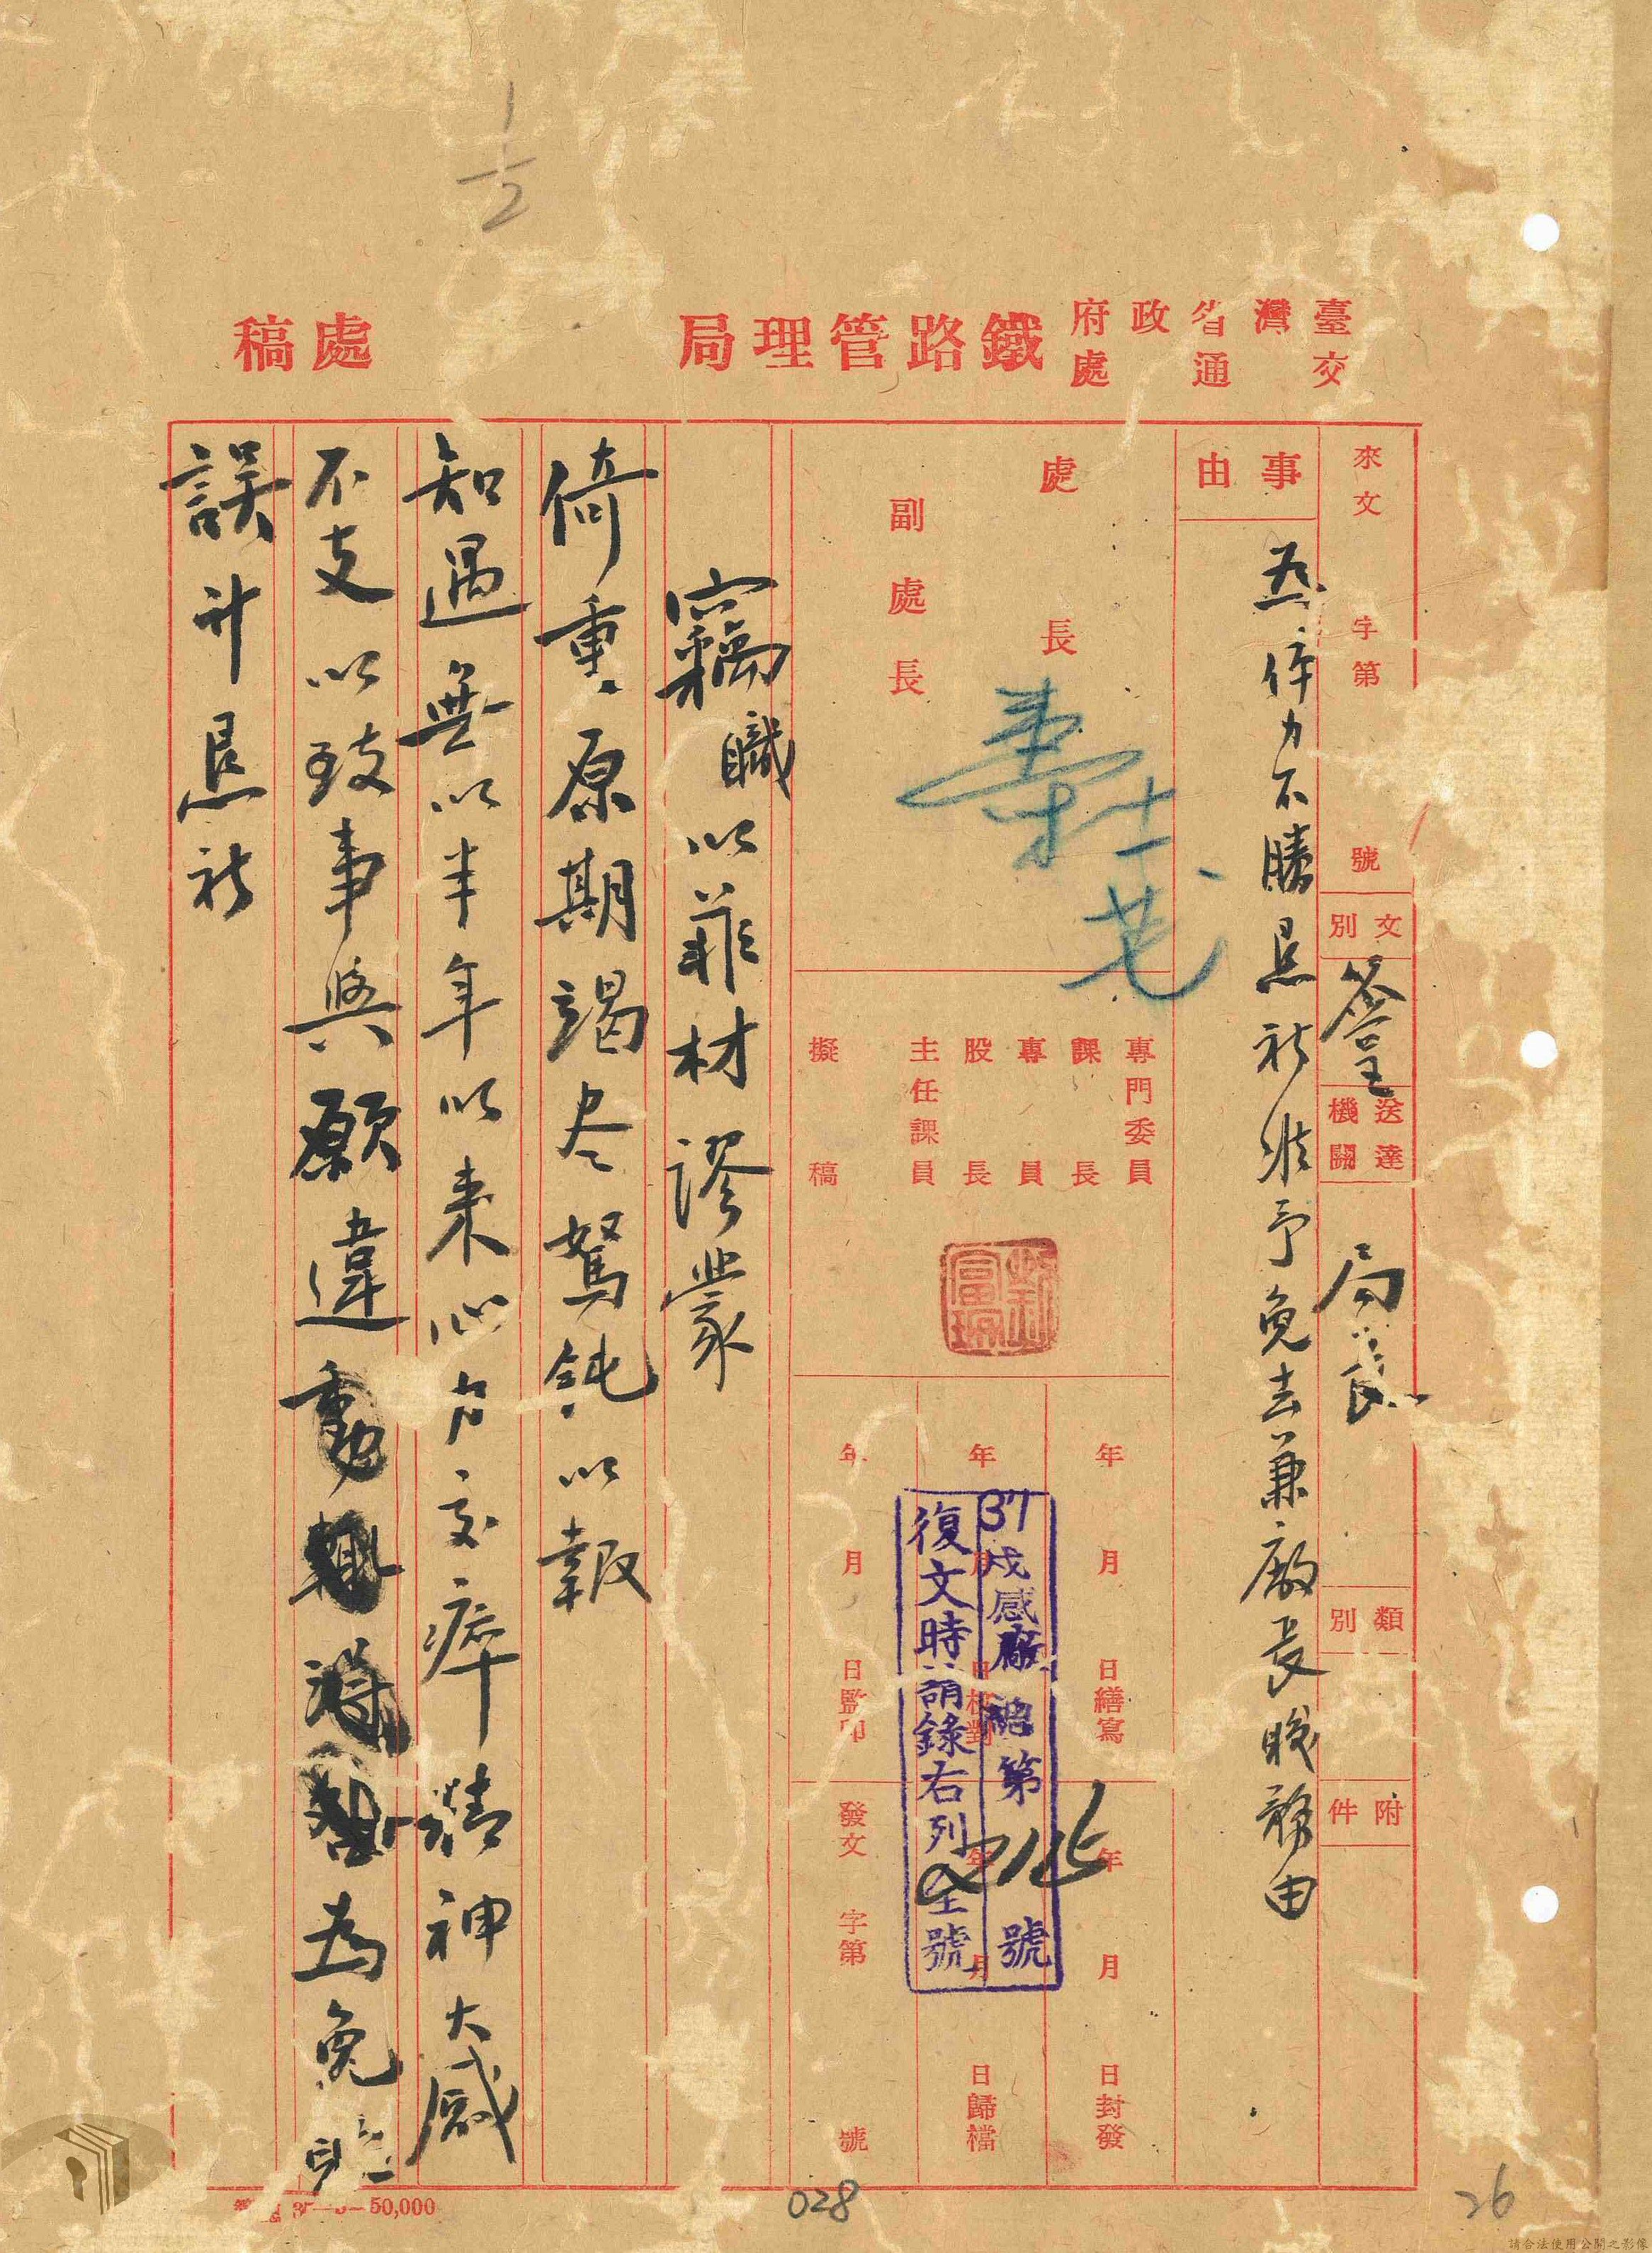 臺灣省政府交通處
鐵路管理局
處稿
來文 字第 號
文別 簽呈
送達機關 局長
類別
附件
事由
為 力不勝懇祈准予免去兼廠長職務由
處長
副處長
專門委員
課長
專員
股長
主任課員
擬稿
年 月 日繕寫
年 月 日校對
年 月 日監印
年 月 日封發
年 月 日歸檔
發文 字第 號
37戌感廠 第 號
復文時請錄右列 號
竊職以菲材謬蒙
倚重原期竭尽駑鈍以報
知遇無以半年以來心力交瘁精神大感
不支以致事與願違 為免
誤計懇祈
50,000
1/2
028
26
請合法使用公開之影像